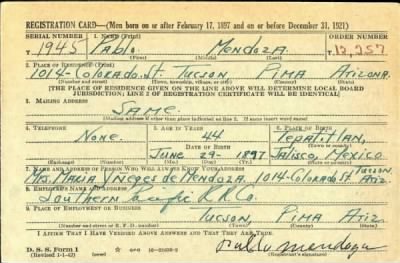 REGISTRATION CARD—(Men born on or after February 17, 1897 and on or before December 31, 1921)
SERIAL NUMBER 1. NAME (Print) ORDER NUMBER
T 1945 Pablo Mendoza T12,257
(First) (Middle) (Last)
2. PLACE OF RESIDENCE (Print)
1014-Colorado St. Tucson, Pima Arizona.
(Number and street) (Town, township, village, or city) (County) (State)
[THE PLACE OF RESIDENCE GIVEN ON THE LINE ABOVE WILL DETERMINE LOCAL BOARD
JURISDICTION; LINE 2 OF REGISTRATION CERTIFICATE WILL BE IDENTICAL]
3. MAILING ADDRESS
SAME.
[Mailing address if other than place indicated on line 2. If same insert word same]
4. TELEPHONE 5. AGE IN YEARS 6. PLACE OF BIRTH
None. 44 Tepatitlan,
DATE OF BIRTH (Town or county)
June 29- 1897. Jalisco, Mexico
(Exchange) (Number) (Mo.) (Day) (Yr.) (State or country)
7. NAME AND ADDRESS OF PERSON WHO WILL ALWAYS KNOW YOUR ADDRESS
Mrs. Maria de Mendoza. 1014-Colorado St. Tucson Ariz.
8. EMPLOYER'S NAME AND ADDRESS
Southern Pacific R.R. Co.
9. PLACE OF EMPLOYMENT OR BUSINESS
Tucson, Pima Ariz.
(Number and street or R. F. D. number) (Town) (County) (State)
I AFFIRM THAT I HAVE VERIFIED ABOVE ANSWERS AND THAT THEY ARE TRUE.
D. S. S. Form 1
(Revised 1-1-42) (over)
Pablo Mendoza